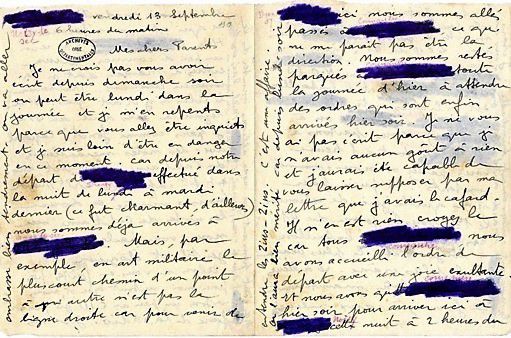 vendredi 13 Septembre
6 heures du matin
Mes chers Parents
ARCHIVES
OISE
DÉPARTEMENTALES
Je ne crois pas vous avoir
écrit depuis dimanche soir
ou peut être lundi dans la
journée et je m'en repents
parce que vous allez être inquiets
et je suis loin d'être en danger
en ce moment car depuis notre
départ d effectué dans
la nuit de lundi à mardi
dernier (ce fut charmant, d'ailleurs)
nous sommes déjà arrivés à
Mais, par
exemple, en art militaire le
plus court chemin d'un point
à un autre n'est pas la
ligne droite car pour venir de
ici nous sommes allés
passés à ce qui
ne me parait pas être la
direction. Nous sommes restés
parqués toute
la journée d'hier à attendre
des ordres qui sont enfin
arrivés hier soir. Je ne vous
ai pas écrit parce que je
n'avais aucun goût à rien
et j'aurais été capable de
vous laisser supposer par ma
lettre que j'avais le cafard.
Il n'en est rien croyez le
car tous nous
avons accueilli l'ordre de
départ avec une joie exultante
et nous avons quitté
hier soir pour arriver ici à
cette nuit à 2 heures du